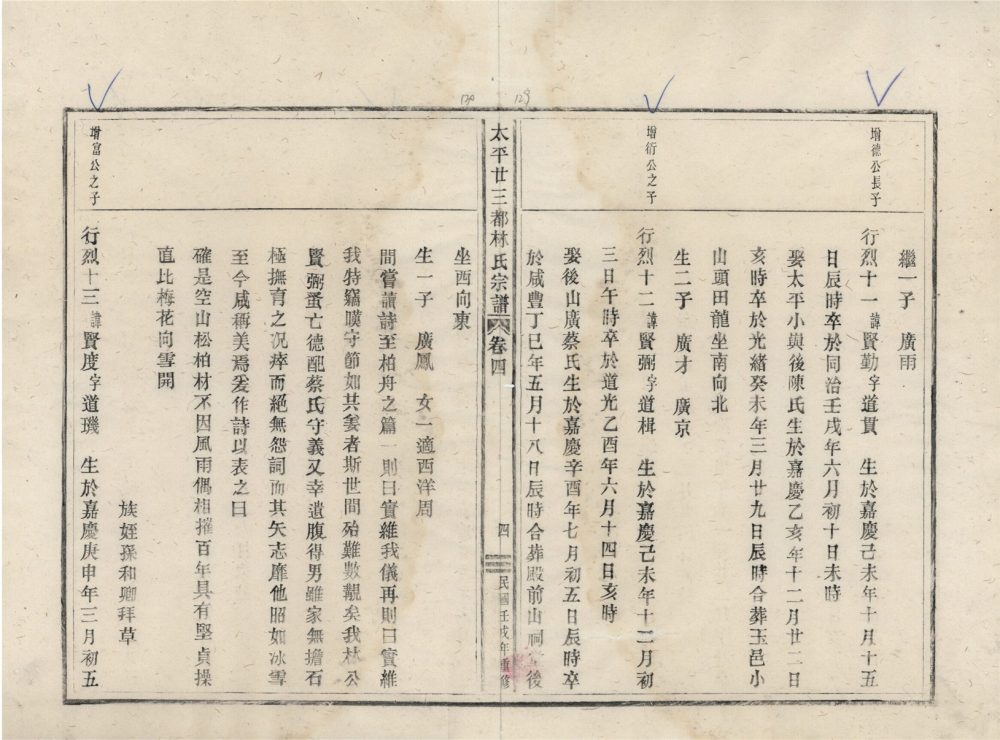 繼一子　廣雨
增德公長子
行烈十一諱賢勤字道貫　生於嘉慶己未年十月十五
日辰時卒於同治壬戌年六月初十日未時
娶太平小與後陳氏生於嘉慶乙亥年十二月廿二日
亥時卒於光緒癸未年三月廿九日辰時合葬玉邑小
山頭田龍坐南向北
生二子　廣才　廣京
增衍公之子
行烈十二諱賢弼字道楫　生於嘉慶己未年十二月初
三日午時卒於道光乙酉年六月十四日亥時
娶後山廣蔡氏生於嘉慶辛酉年七月初五日辰時卒
於咸豐丁巳年五月十八日辰時合葬殿前山祠堂後
太平廿三都林氏宗譜　卷四　四　民國壬戌年重修
坐西向東
生一子　廣鳳　女一適西洋周
間嘗讀詩至柏舟之篇一則曰實維我儀再則曰實維
我特竊嘆守節如共姜者斯世間殆難數覯矣我林公
賢弼蚤亡德配蔡氏守義又幸遺腹得男雖家無擔石
極撫育之况瘁而絕無怨詞而其矢志靡他昭如冰雪
至今咸稱美焉爰作詩以表之曰
確是空山松柏材不因風雨偶相摧百年具有堅貞操
直比梅花向雪開
族姪孫和卿拜草
增富公之子
行烈十三諱賢度字道璣　生於嘉慶庚申年三月初五